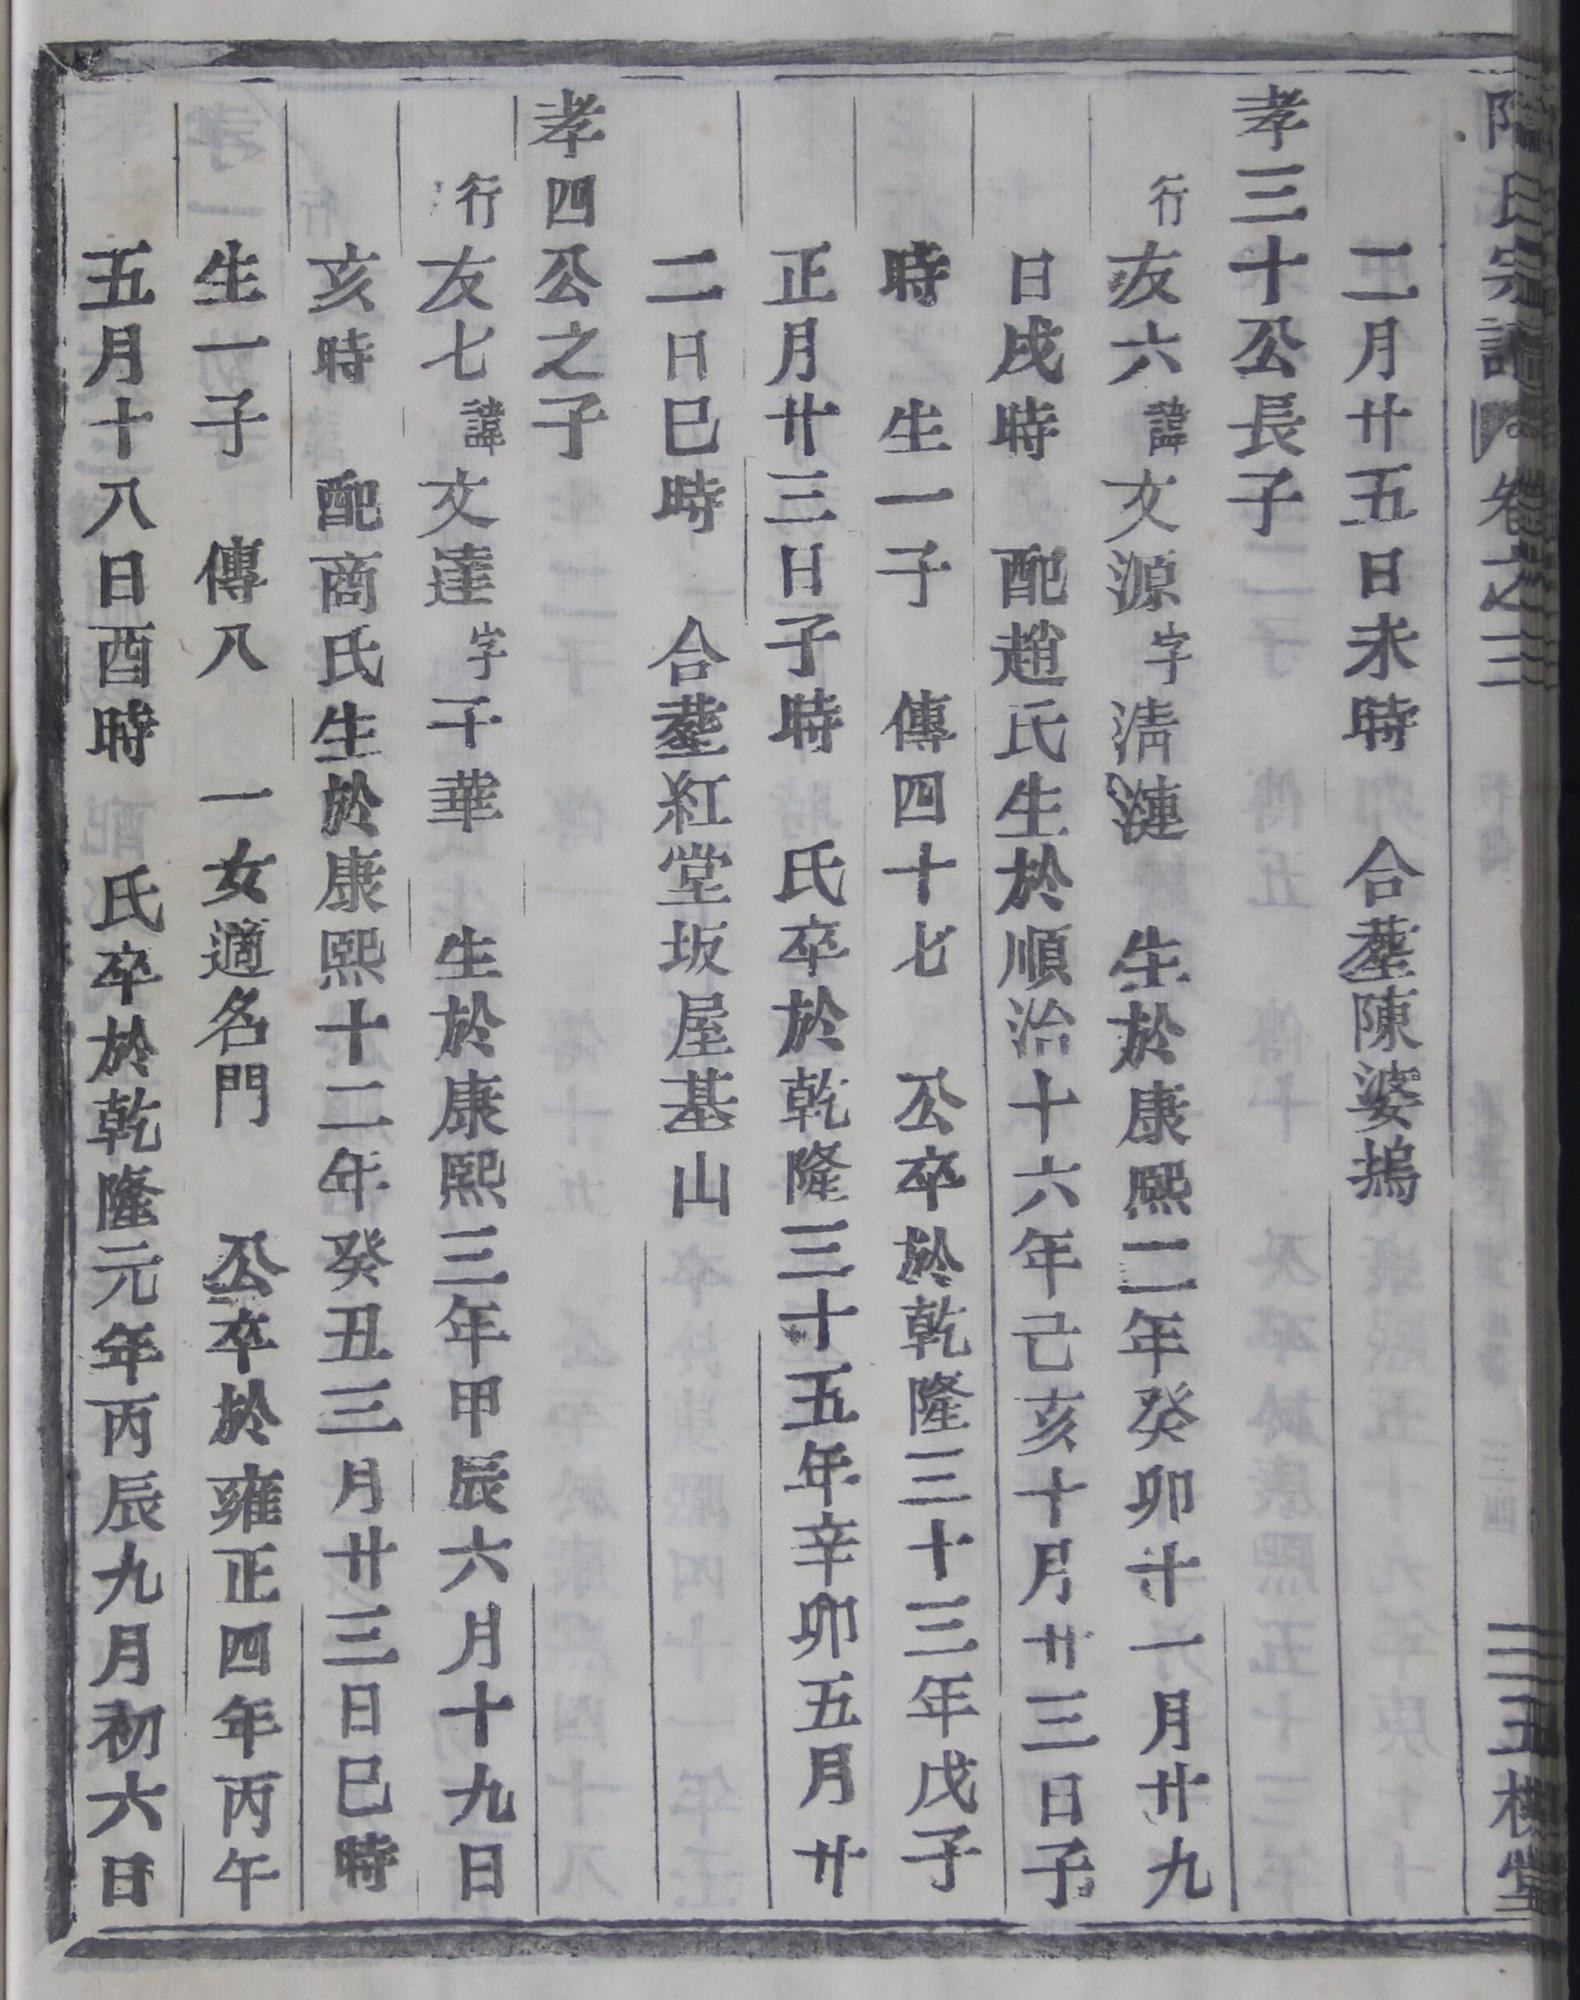 氏宗譜 卷之三 三五樸堂
二月廿五日未時 合塟陳婆塢
孝三十公長子
行友六諱文源字淸漣 生於康熙二年癸卯十一月廿九
日戌時 配趙氏生於順治十六年己亥十月廿三日子
時 生一子 傳四十七 公卒於乾隆三十三年戊子
正月廿三日子時 氏卒於乾隆三十五年辛卯五月廿
二日巳時 合塟紅堂坂屋基山
孝四公之子
行友七諱文達字干華 生於康熙三年甲辰六月十九日
亥時 配商氏生於康熙十二年癸丑三月廿三日巳時
生一子 傳八 一女適名門 公卒於雍正四年丙午
五月十八日酉時 氏卒於乾隆元年丙辰九月初六日